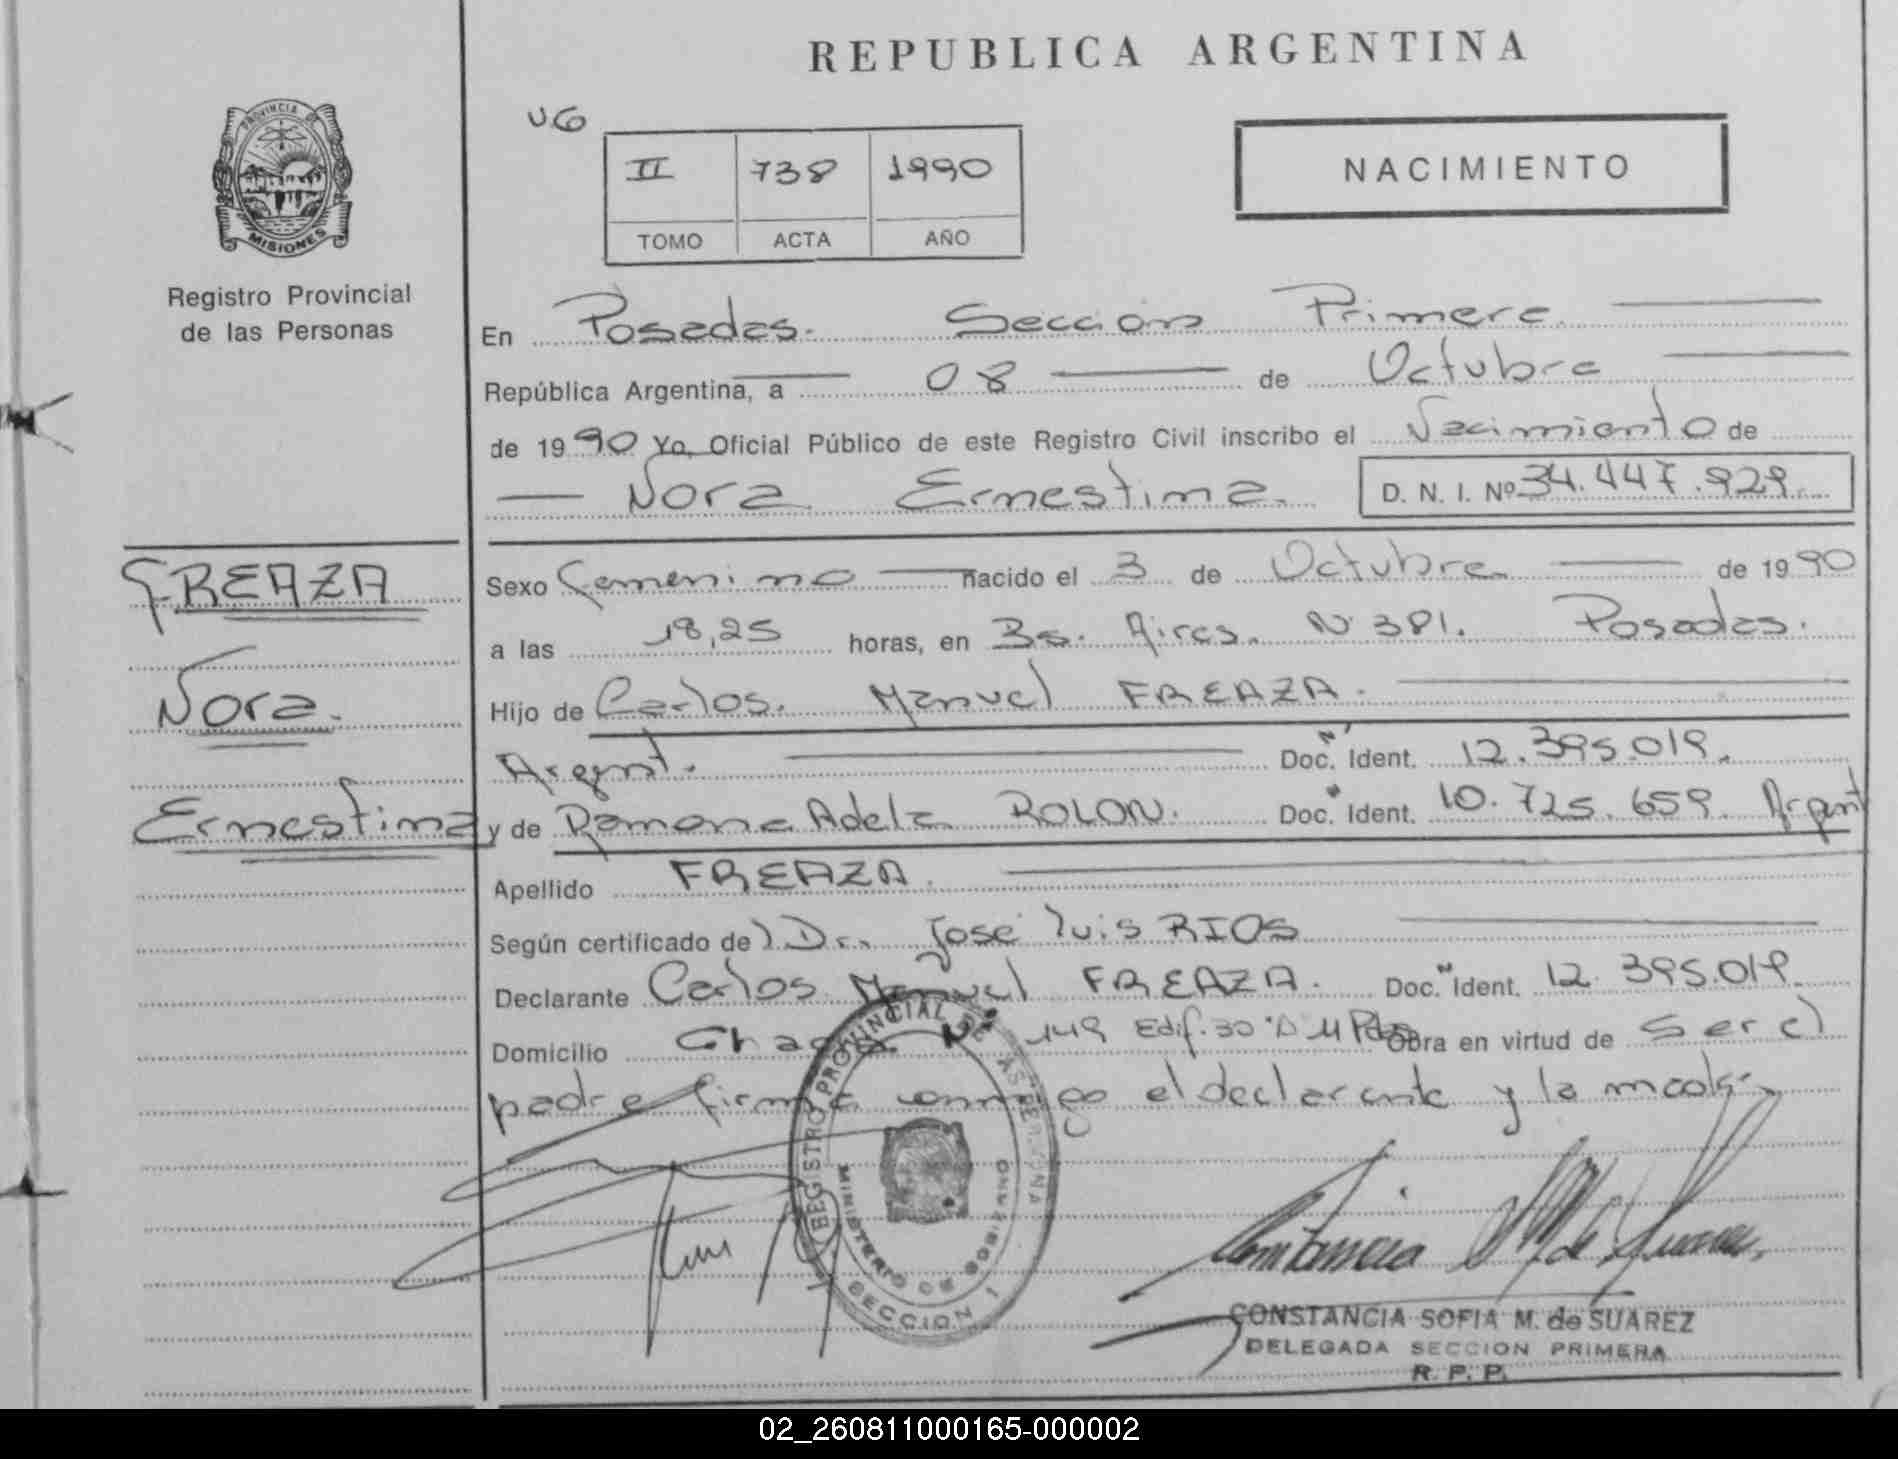 REPUBLICA ARGENTINA
PROVINCIA DE
MISIONES
Registro Provincial
de las Personas
UG
II 738 1990
TOMO ACTA AÑO
NACIMIENTO
En Posadas. Seccion Primera
República Argentina, a 08 de Octubre
de 1990 Yo, Oficial Público de este Registro Civil inscribo el Nacimiento de
Nora Ernestina. D. N. I. Nº 34.447.929.
FREAZA
Nora.
Ernestina
Sexo Femenino nacido el 3 de Octubre de 1990
a las 18,25 horas, en Bs. Aires. Nº 381. Posadas.
Hijo de Carlos. Manuel FREAZA.
Argent. Doc. Nº Ident. 12.395.019.
y de Ramona Adela ROLON. Doc. Ident. 10.725.659. Argent
Apellido FREAZA.
Según certificado de) Dr. José luis RIOS
Declarante Carlos Manuel FREAZA. Doc. Ident. 12.395.019.
Domicilio Chaco. Nº 149 Edif. 30 "D" 11 Pdas Obra en virtud de ser el
padre firma conmigo el declarante y la madre
REGISTRO PROVINCIAL DE LAS PERSONAS
MINISTERIO DE GOBIERNO
SECCION 1
CONSTANCIA SOFIA M. de SUAREZ
DELEGADA SECCION PRIMERA
R. P. P.
02_260811000165-000002